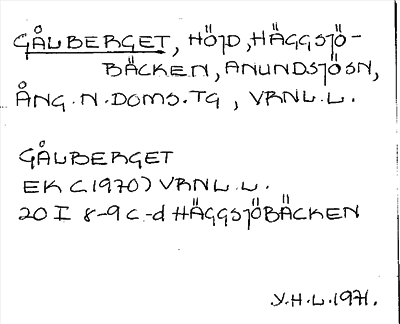 GÅLBERGET, HÖJD, HÄGGSJÖ-
BÄCKEN, ANUNDSJÖSN,
ÅNG. N. DOMS. TG, VRNL. L.
GÅLBERGET
EK C(1970) VRNL. L.
20 I 8-9 c-d HÄGGSJÖBÄCKEN
.Y.H.L. 1971.